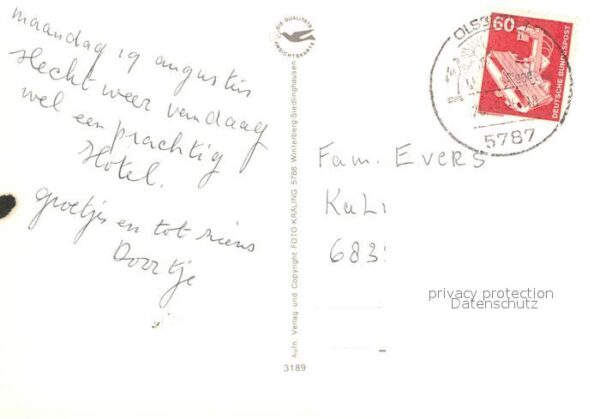 maandag 19 augustus
slecht weer vandaag
wel een prachtig
Hotel.
groetjes en tot ziens
Doortje
DIE QUALITÄTS
ANSICHTSKARTE
Aufn. Verlag und Copyright FOTO-KRÄLING 5788 Winterberg-Siedlinghausen
3189
60
DEUTSCHE BUNDESPOST
OLS
5787
Fam. Evers
KuL
683
privacy protection
Datenschutz